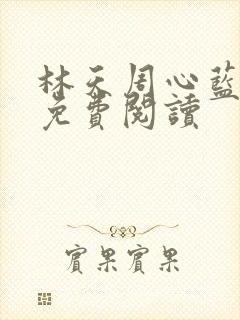 林天周心藍
免費閱讀
賓果賓果